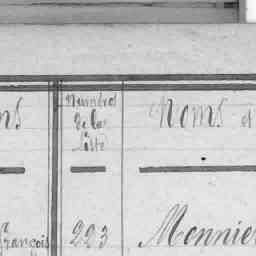 ns
Numéros
de la
liste
Noms e
François
223
Monnie